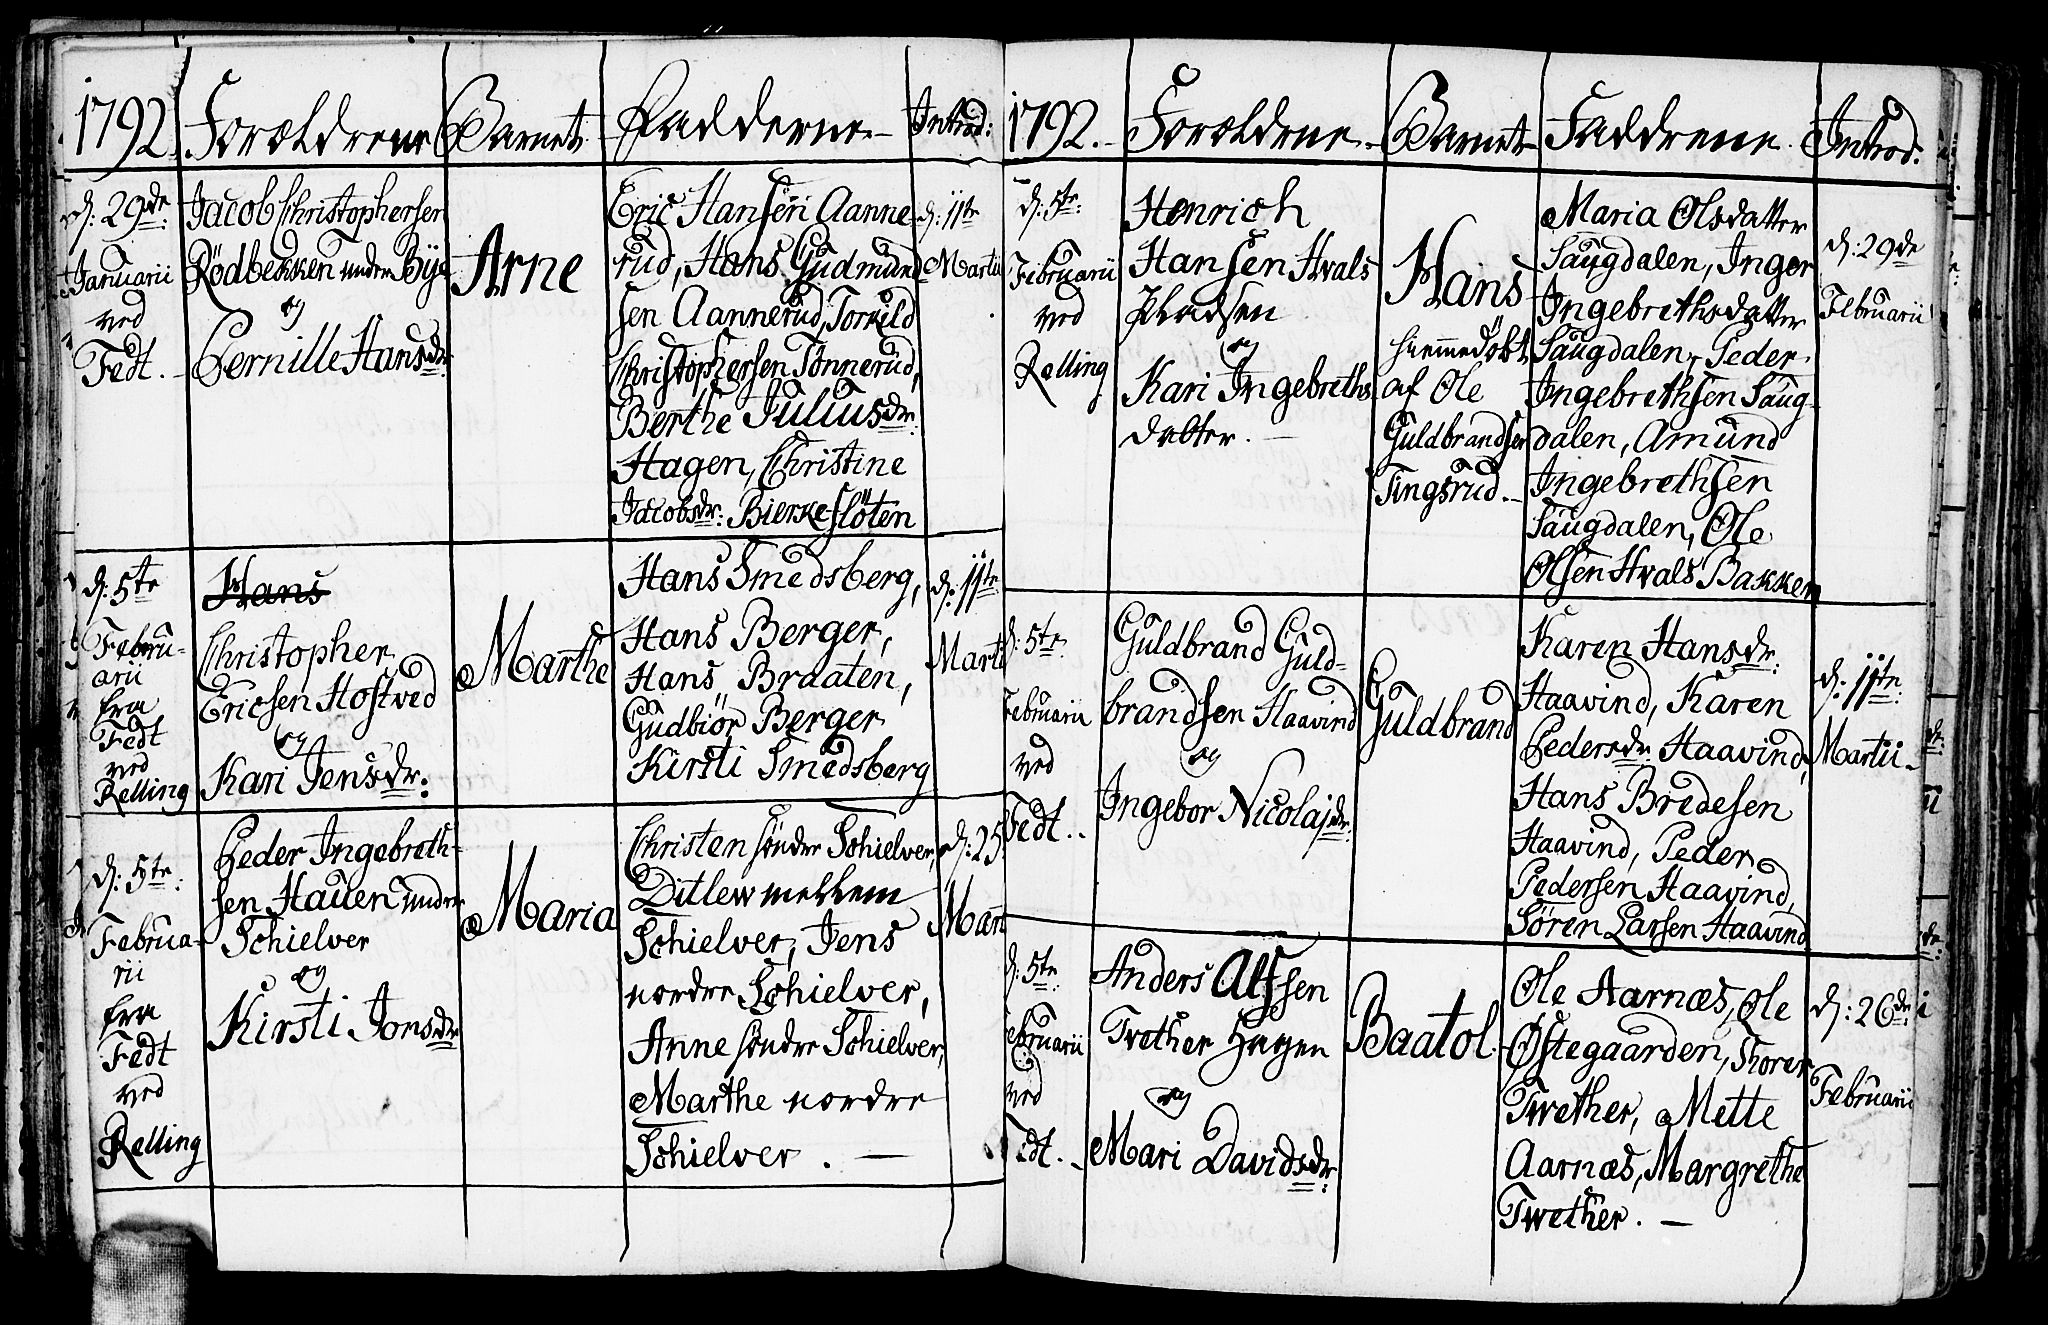 1792 Forældrene Barnet Fadderne Introd:
d: 29de
Januarii
ved
Fedt.
Jacob Christophersen
Rödbekken under Bye
og
Pernille Hansdr:
Arne
Eric Hansen Aanne-
rud, Hans Gudmund
sen Aannerud, Torkild
Christophersen Tønnerud,
Berthe Juliusdr:
Hagen, Christine
Jacobsdr: Bierkeslöten
d: 11te
Martii
d: 5te
Febru-
arii
fra
Fedt
ved
Relling
Hans
Christopher
Ericsen Hostved
og
Kari Jensdr:
Marthe
Hans Smedsberg,
Hans Berger,
Hans Braaten,
Gudbiör Berger
Kirsti Smedsberg
d: 11te
Marti
d: 5te:
Februa-
rii
fra
Fedt
ved
Relling
Peder Ingebreth-
sen Hauen under
Schielver
og
Kirsti Jonsdr
Maria
Christen søndre Schielver,
Ditlew mellem
Schielver, Jens
nordre Schielver,
Anne søndre Schielver,
Marthe nordre
Schielver. —
d: 25
Mart
1792. Forældrne Barnet Faddrene Introd:
d: 5te:
Februarii
ved
Relling
Henrich
Hansen Hvals
Pladsen
og
Kari Ingebreths
datter. —
Hans
hiemmedöbt
af Ole
Guldbrandsen
Tingsrud. -
Maria Olsdatter
Saugdalen, Inger
Ingebrethsdatter
Saugdalen, Peder
Ingebrethsen Saug-
dalen, Amund
Ingebrethsen
Saugdalen, Ole
Olsen Hvals Bakken
d: 29de
Februarii
d: 5te
Februarii
ved
Fedt..
Guldbrand Guld-
brandsen Haavind
og
Ingebor Nicolajdr:
Guldbrand
Karen Hansdr:
Haavind, Karen
Pedersdr: Haavind,
Hans Bredesen
Haavind, Peder
Pedersen Haavind,
Sören Larsen Haavind
d: 11te:
Martii-
d: 5te
ebruarii
ved
Fedt. -
Anders Alfsen
Twether Hagen
og
Mari Davidsdr:
Baatol.
Ole Aarnæs, Ole
Östegaarden, Thorer
Twether, Mette
Aarnæs, Margrethe
Twether. —
d: 26de
Februarii